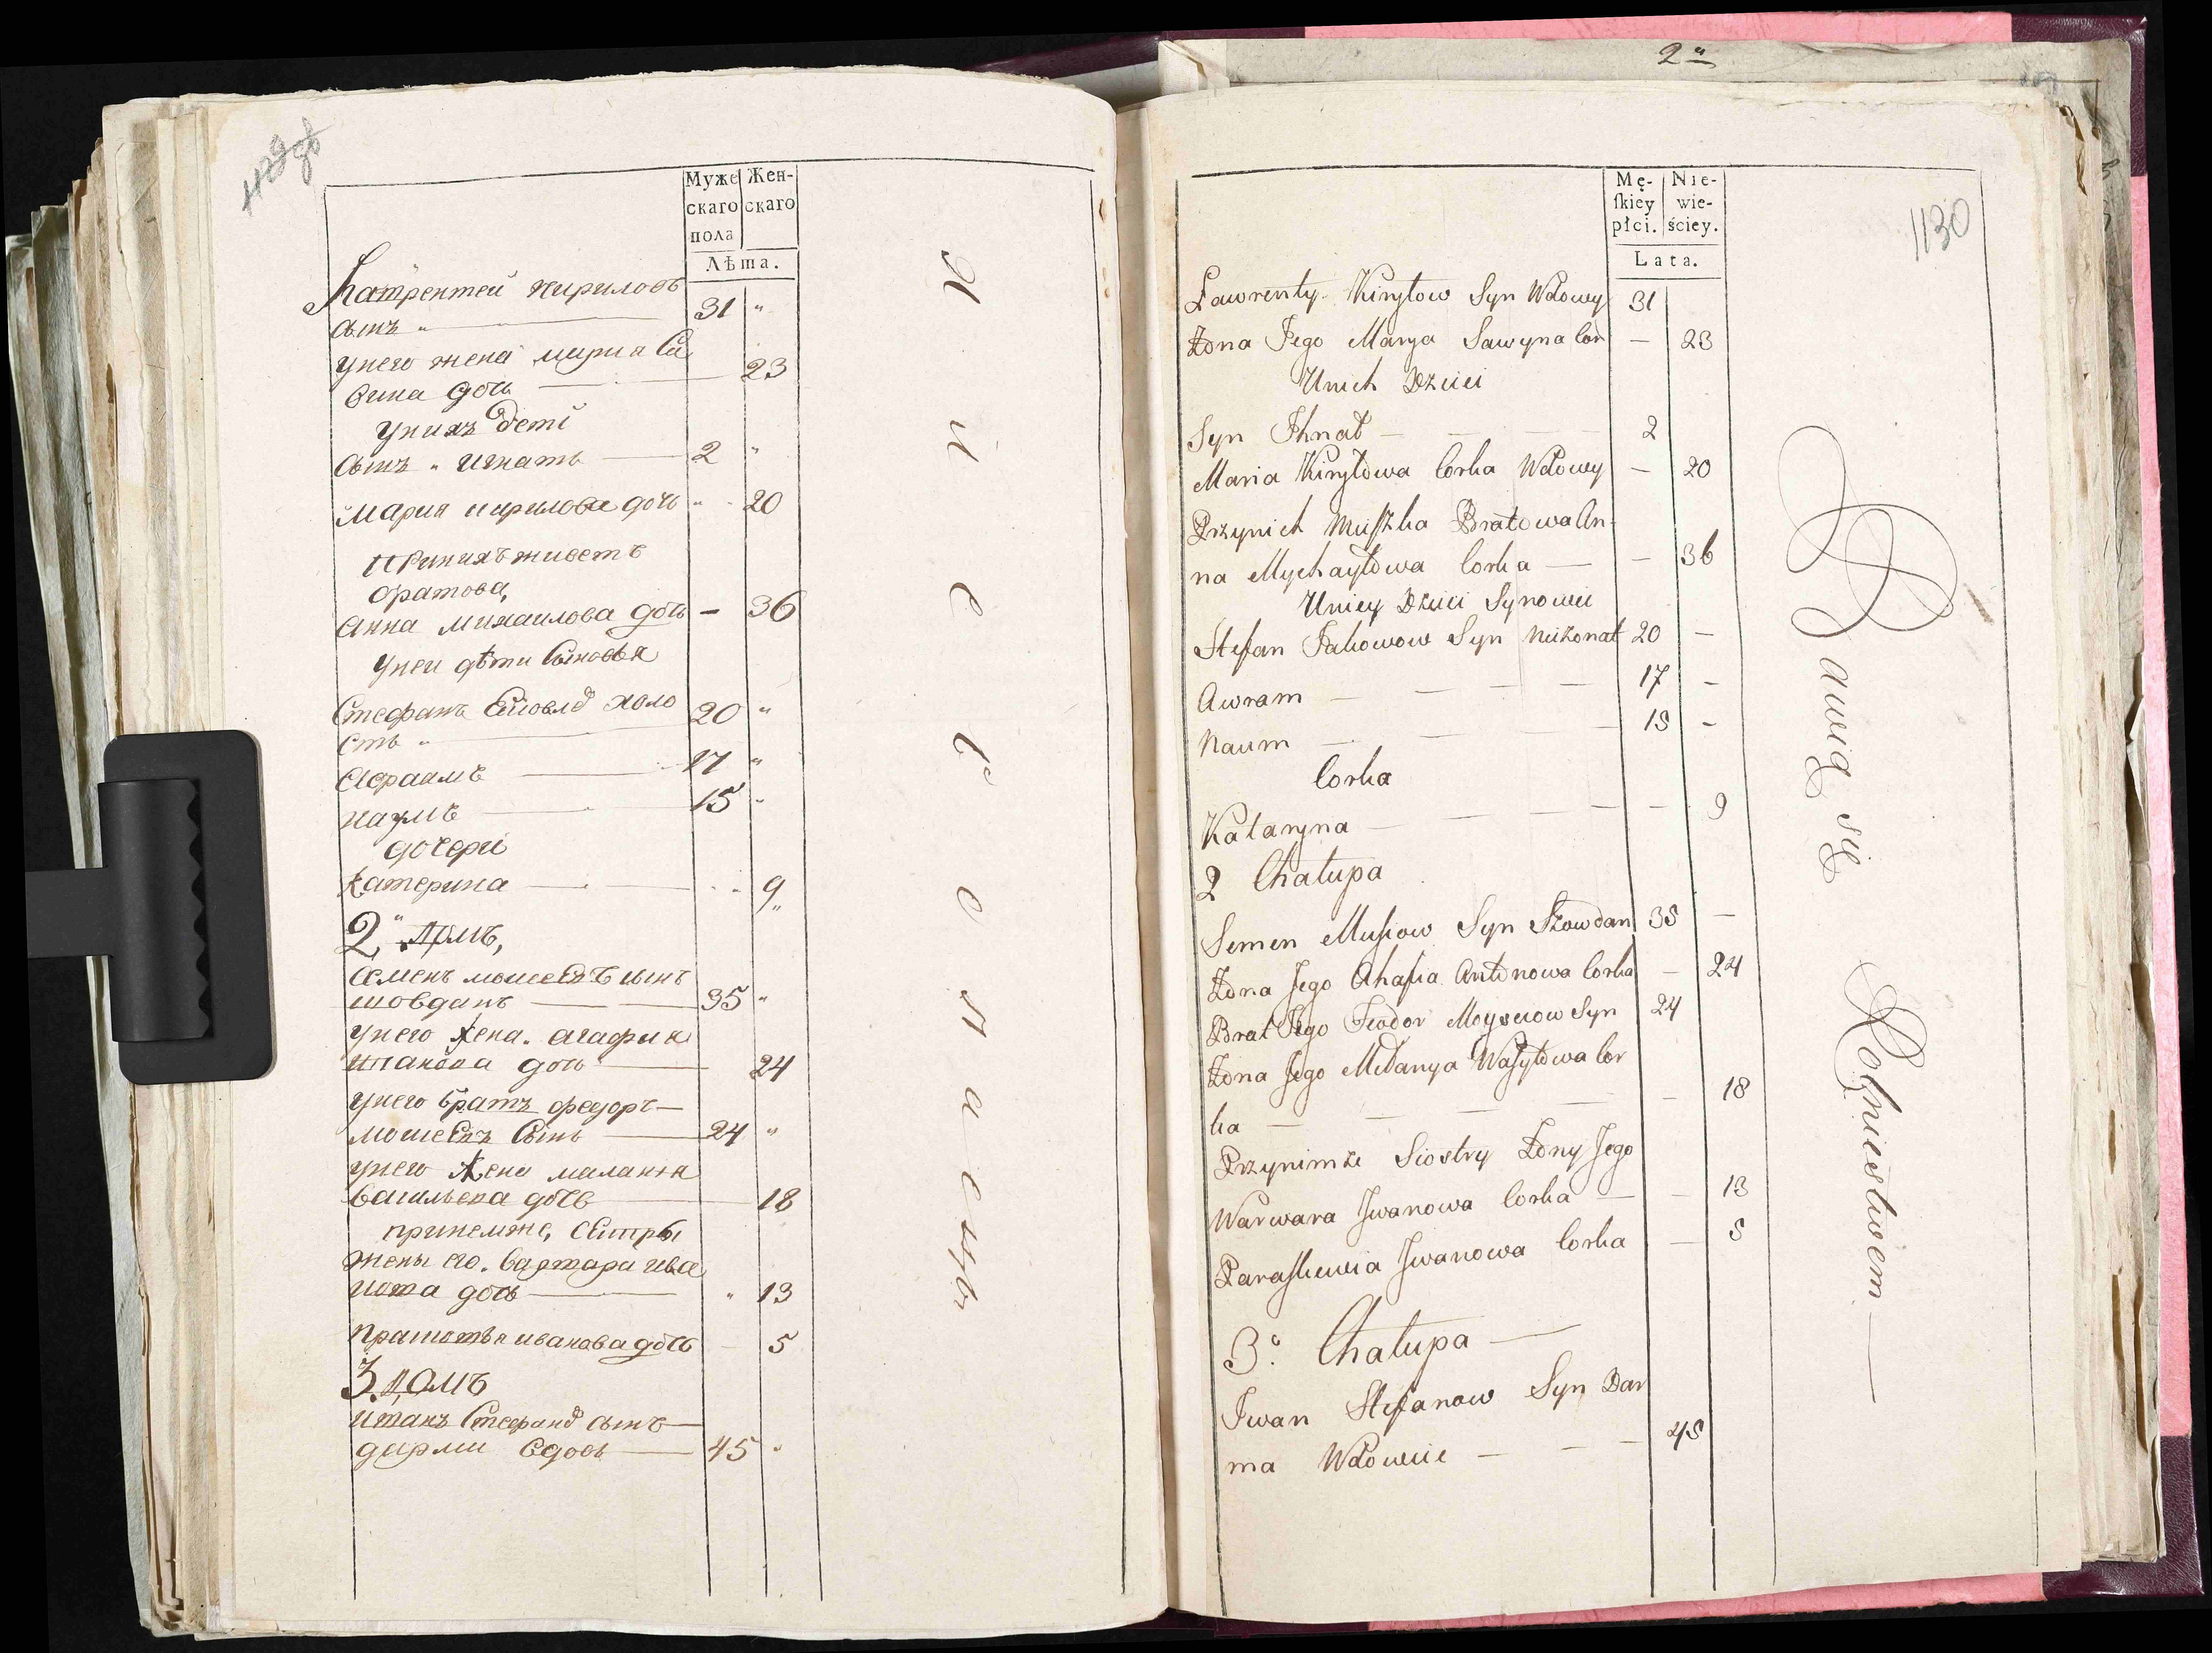 Муже Жен-
скаго скаго
пола
Лѣта.
Лаврентей кириловъ
сынъ " 31 "
унего жена мария Са
вина дочь 23
унихъ дети
сынъ " игнатъ 2 "
мария кирилова дочь " 20
принихъ живетъ
братова,
анна михаилова дочь - 36
унеи дѣти сыновья
Стефанъ холо
стъ " 20 "
авраамъ 17 "
наумъ 15 "
дочери
катерина 9
2 домъ,
семенъ сынъ
шовданъ 35 "
унего жена. агафия
дочь 24
унего братъ федоръ
сынъ 24 "
унего жена маланья
васильева дочь 18
принемже, сестры
жены его. варвара ива
нова дочь " 13
иванова дочь - 5
3. домъ
иванъ сынъ
дарми вдовъ 45 "
2
1130
Mę- Nie-
skiey wie-
płci. ściey.
Lata.
Ławrenty Kiryłow Syn Wdowy 31
Żona Jego Marya Sawyna Cor — 23
Unich Dzieci
Syn Ihnat — 2
Maria Kiryłowa Corka Wdowy — 20
Przynich Mieszka Bratowa An-
na Mychayłowa Corka — — 36
Uniey Dzieci Synowie
Stefan Jakowow Syn Nieżonat 20 —
Awram — — — — 17 —
Naum — — — — 15 —
Corka
Kataryna — — — — — 9
2 Chałupa
Semen Musiow Syn Szowdan 35 —
Żona Jego Ahafia Antonowa Corka — 24
Brat Jego Feodor Moyseiow Syn 24
Żona Jego Mełanya Wasyłowa Cor
ka — — — — — 18
Przynimże Siostry Żony Jego
Warwara Jwanowa Corka — — 13
Paraskewia Jwanowa Corka — 5
3. Chałupa —
Jwan Stefanow Syn Dar
ma Wdowiec — — — 45
Bawią się Rolnictwem —